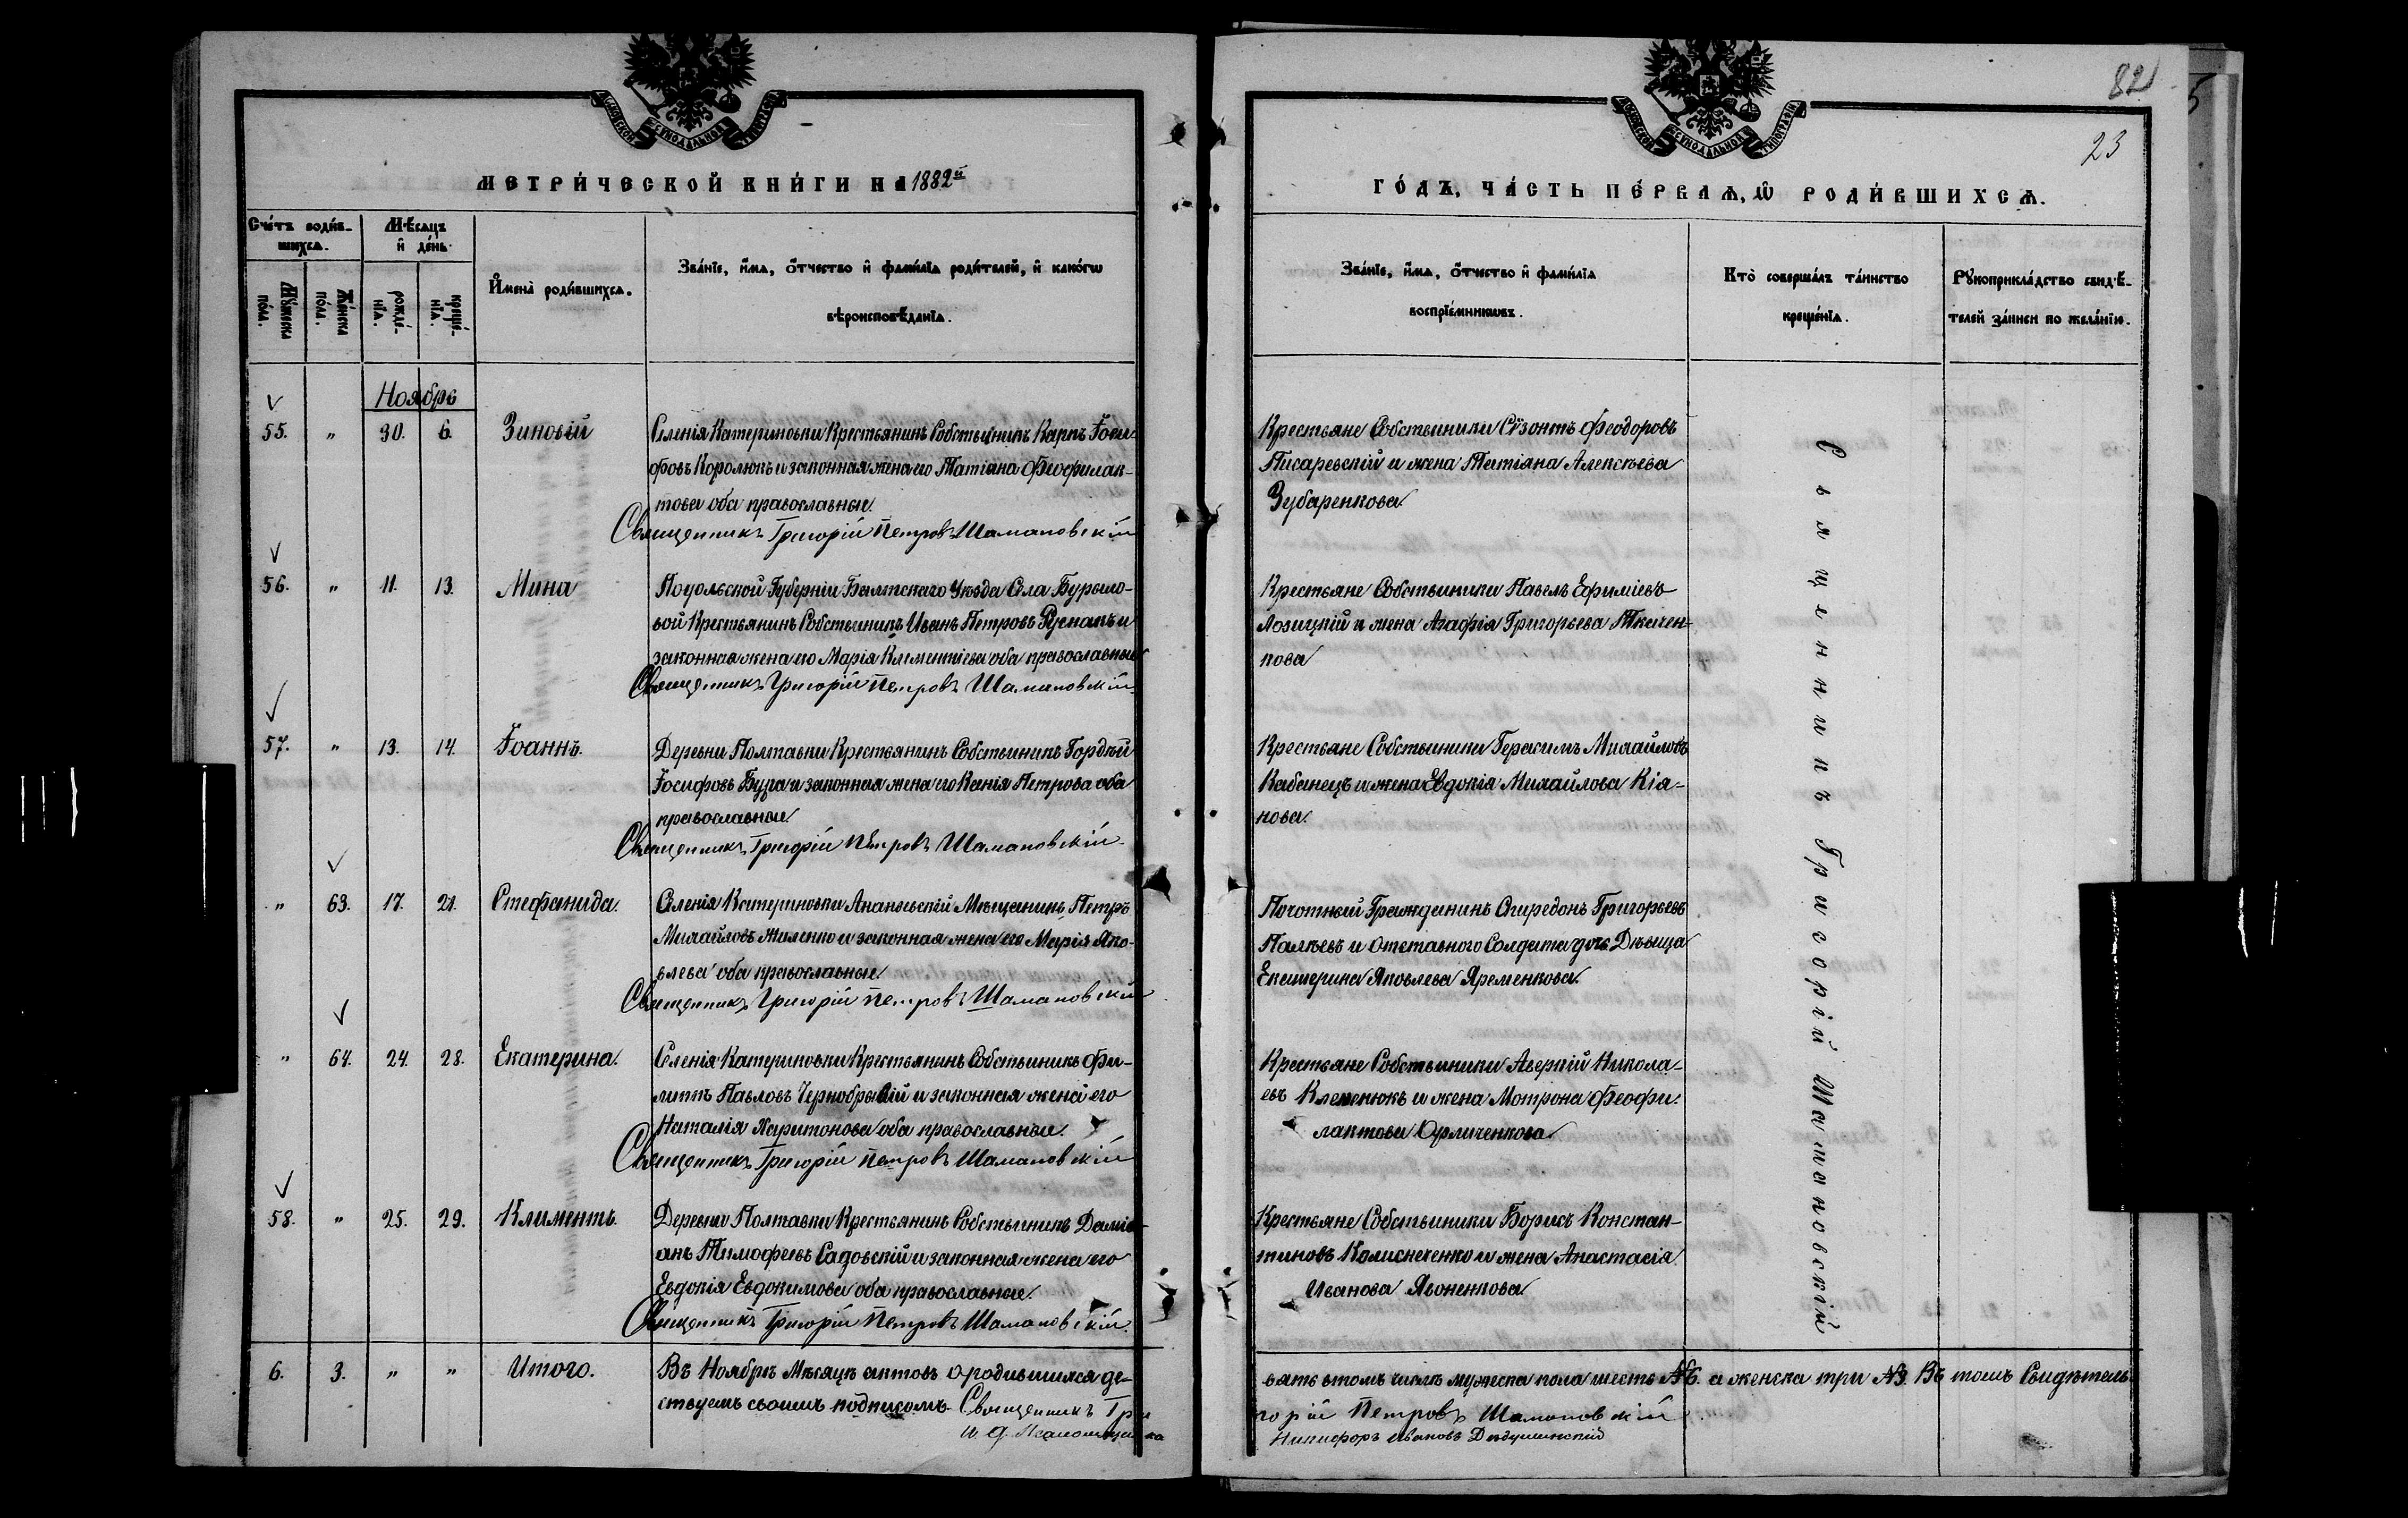 82
23
МОСКОВСКОЙ СУНОДАЛЬНОЙ ТИПОГРАФІИ
МОСКОВСКОЙ СУНОДАЛЬНОЙ ТИПОГРАФІИ
МЕТРИ́ЧЕСКОЙ КНИ́ГИ НА 1882й
ГО́ДЪ, ЧА́СТЬ ПЕ́РВАѦ, Ѡ РОДИ́ВШИХСѦ.
Сче́тъ роди́в-
шихсѧ.
Мѣ́сѧцъ
и҆ де́нь.
Му́жеска
по́ла.
Же́нска
по́ла.
рожде́-
нїѧ.
креще́-
нїѧ.
И҆мена̀ роди́вшихсѧ.
Зва́нїе, и҆́мѧ, ѻ҆́тчество и҆ фами́лїѧ роди́телей, и҆ како́гѡ
вѣроисповѣ́данїѧ.
Зва́нїе, и҆́мѧ, ѻ҆́тчество и҆ фами́лїѧ
воспрїе́мникѡвъ.
Кто̀ соверша́лъ та́инство
креще́нїѧ.
Рꙋкоприкла́дство свидѣ́-
телей за́писи по жела́нїю.
Ноябрь
55. " 30. 6. Зиновій
Селенія Катериновки Крестьянинъ Собственникъ Карпъ Іоси-
фовъ Королюкъ и законная жена его Татіана Феофилак-
това оба православные.
Священникъ Григорій Петровъ Шамановскій
Крестьяне Собственники Сузонтъ Феодоровъ
Писаревскій и жена Татіана Алексѣева
Зубаренкова
56. " 11. 13. Мина
Подольской Губерніи Балтскаго Уѣзда Села Бурило-
вой Крестьянинъ Собственникъ Иванъ Петровъ Руснакъ и
законная жена его Марія Климентіева оба православные
Священникъ Григорій Петровъ Шамановскій
Крестьяне Собственники Павелъ Ефиміевъ
Лозицкій и жена Агафія Григорьева Ткачен-
кова
57. " 13. 14. Іоаннъ.
Деревни Полтавки Крестьянинъ Собственникъ Гордѣй
Іосифовъ Бура и законная жена его Ксенія Петрова оба
православные
Священникъ Григорій Петровъ Шамановскій.
Крестьяне Собственники Герасимъ Михайловъ
Кабанецъ и жена Евдокія Михайлова Кія-
нова.
" 63. 17. 21. Стефанида.
Селенія Катериновки Ананьевскій Мѣщанинъ Петръ
Михайловъ Жиленко и законная жена его Марія Яко-
влева оба православные.
Священникъ Григорій Петровъ Шамановскій
Почотный Гражданинъ Спиредонъ Григорьевъ
Палѣевъ и отставного Солдата дочь Дѣвица
Екатерина Яковлева Яременкова.
" 64. 24. 28. Екатерина.
Селенія Катериновки Крестьянинъ Собственникъ Фи-
липъ Павловъ Чернобрывій и законная жена его
Наталія Харитонова оба православные.
Священникъ Григорій Петровъ Шамановскій
Крестьяне Собственники Аверкій Никола-
евъ Клепенюкъ и жена Мотрона Феофи-
лактова Орличенкова
58. " 25. 29. Климентъ.
Деревни Полтавки Крестьянинъ Собственникъ Дамі-
анъ Тимофеевъ Садовскій и законная жена его
Евдокія Евдокимова оба православные.
Священникъ Григорій Петровъ Шамановскій.
Крестьяне Собственники Борисъ Констан-
тиновъ Колисниченко и жена Анастасія
Иванова Явоненкова
Священникъ Григорій Шамановскій
6. 3. " " Итого.
Въ Ноябрѣ Мѣсяцѣ актовъ о родившихся де-
вять втомъ числѣ мужеска пола шесть №6. а женска три №3. Въ томъ Свидѣтель-
ствуемъ своимъ подписомъ Священникъ Гри
горій Петровъ Шамановскій
И. д. Псаломщика
Никифоръ Ивановъ Дедушинскій